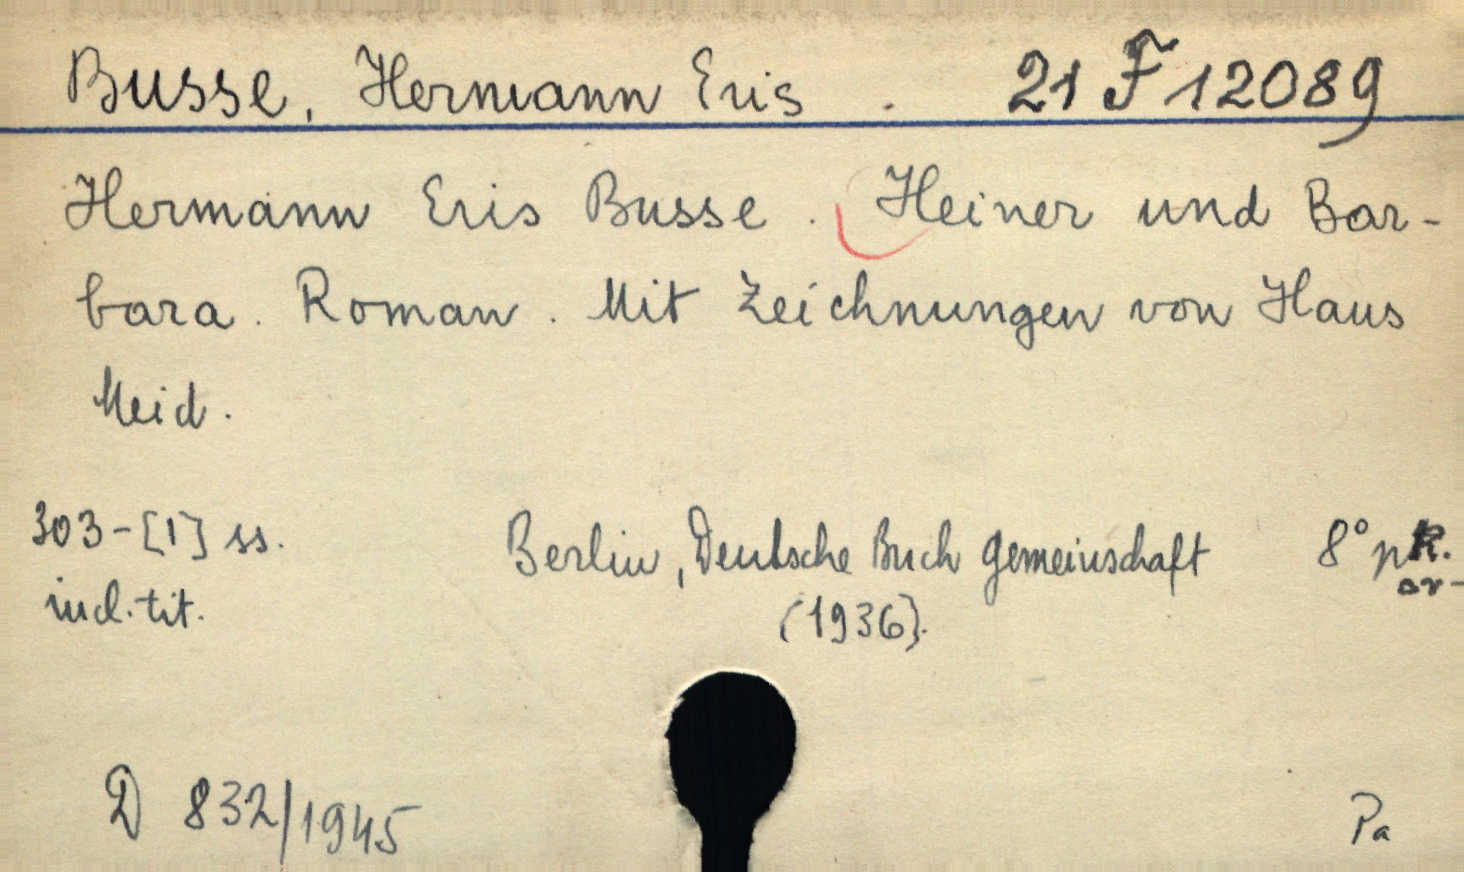 Busse, Hermann Eris . 21 F 12089
Hermann Eris Busse . Heiner und Bar-
bara. Roman. Mit Zeichnungen von Hans
Meid.
303-[1] ss. Berlin, Deutsche Buch Gemeinschaft 8°
incl. tit. (1936).
D 832/1945 Pa